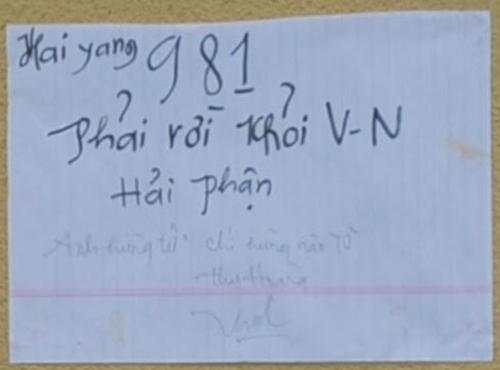 Hai yang 981
Phải rời khỏi V-N
Hải phận
Anh hùng tử chí hùng nào tử